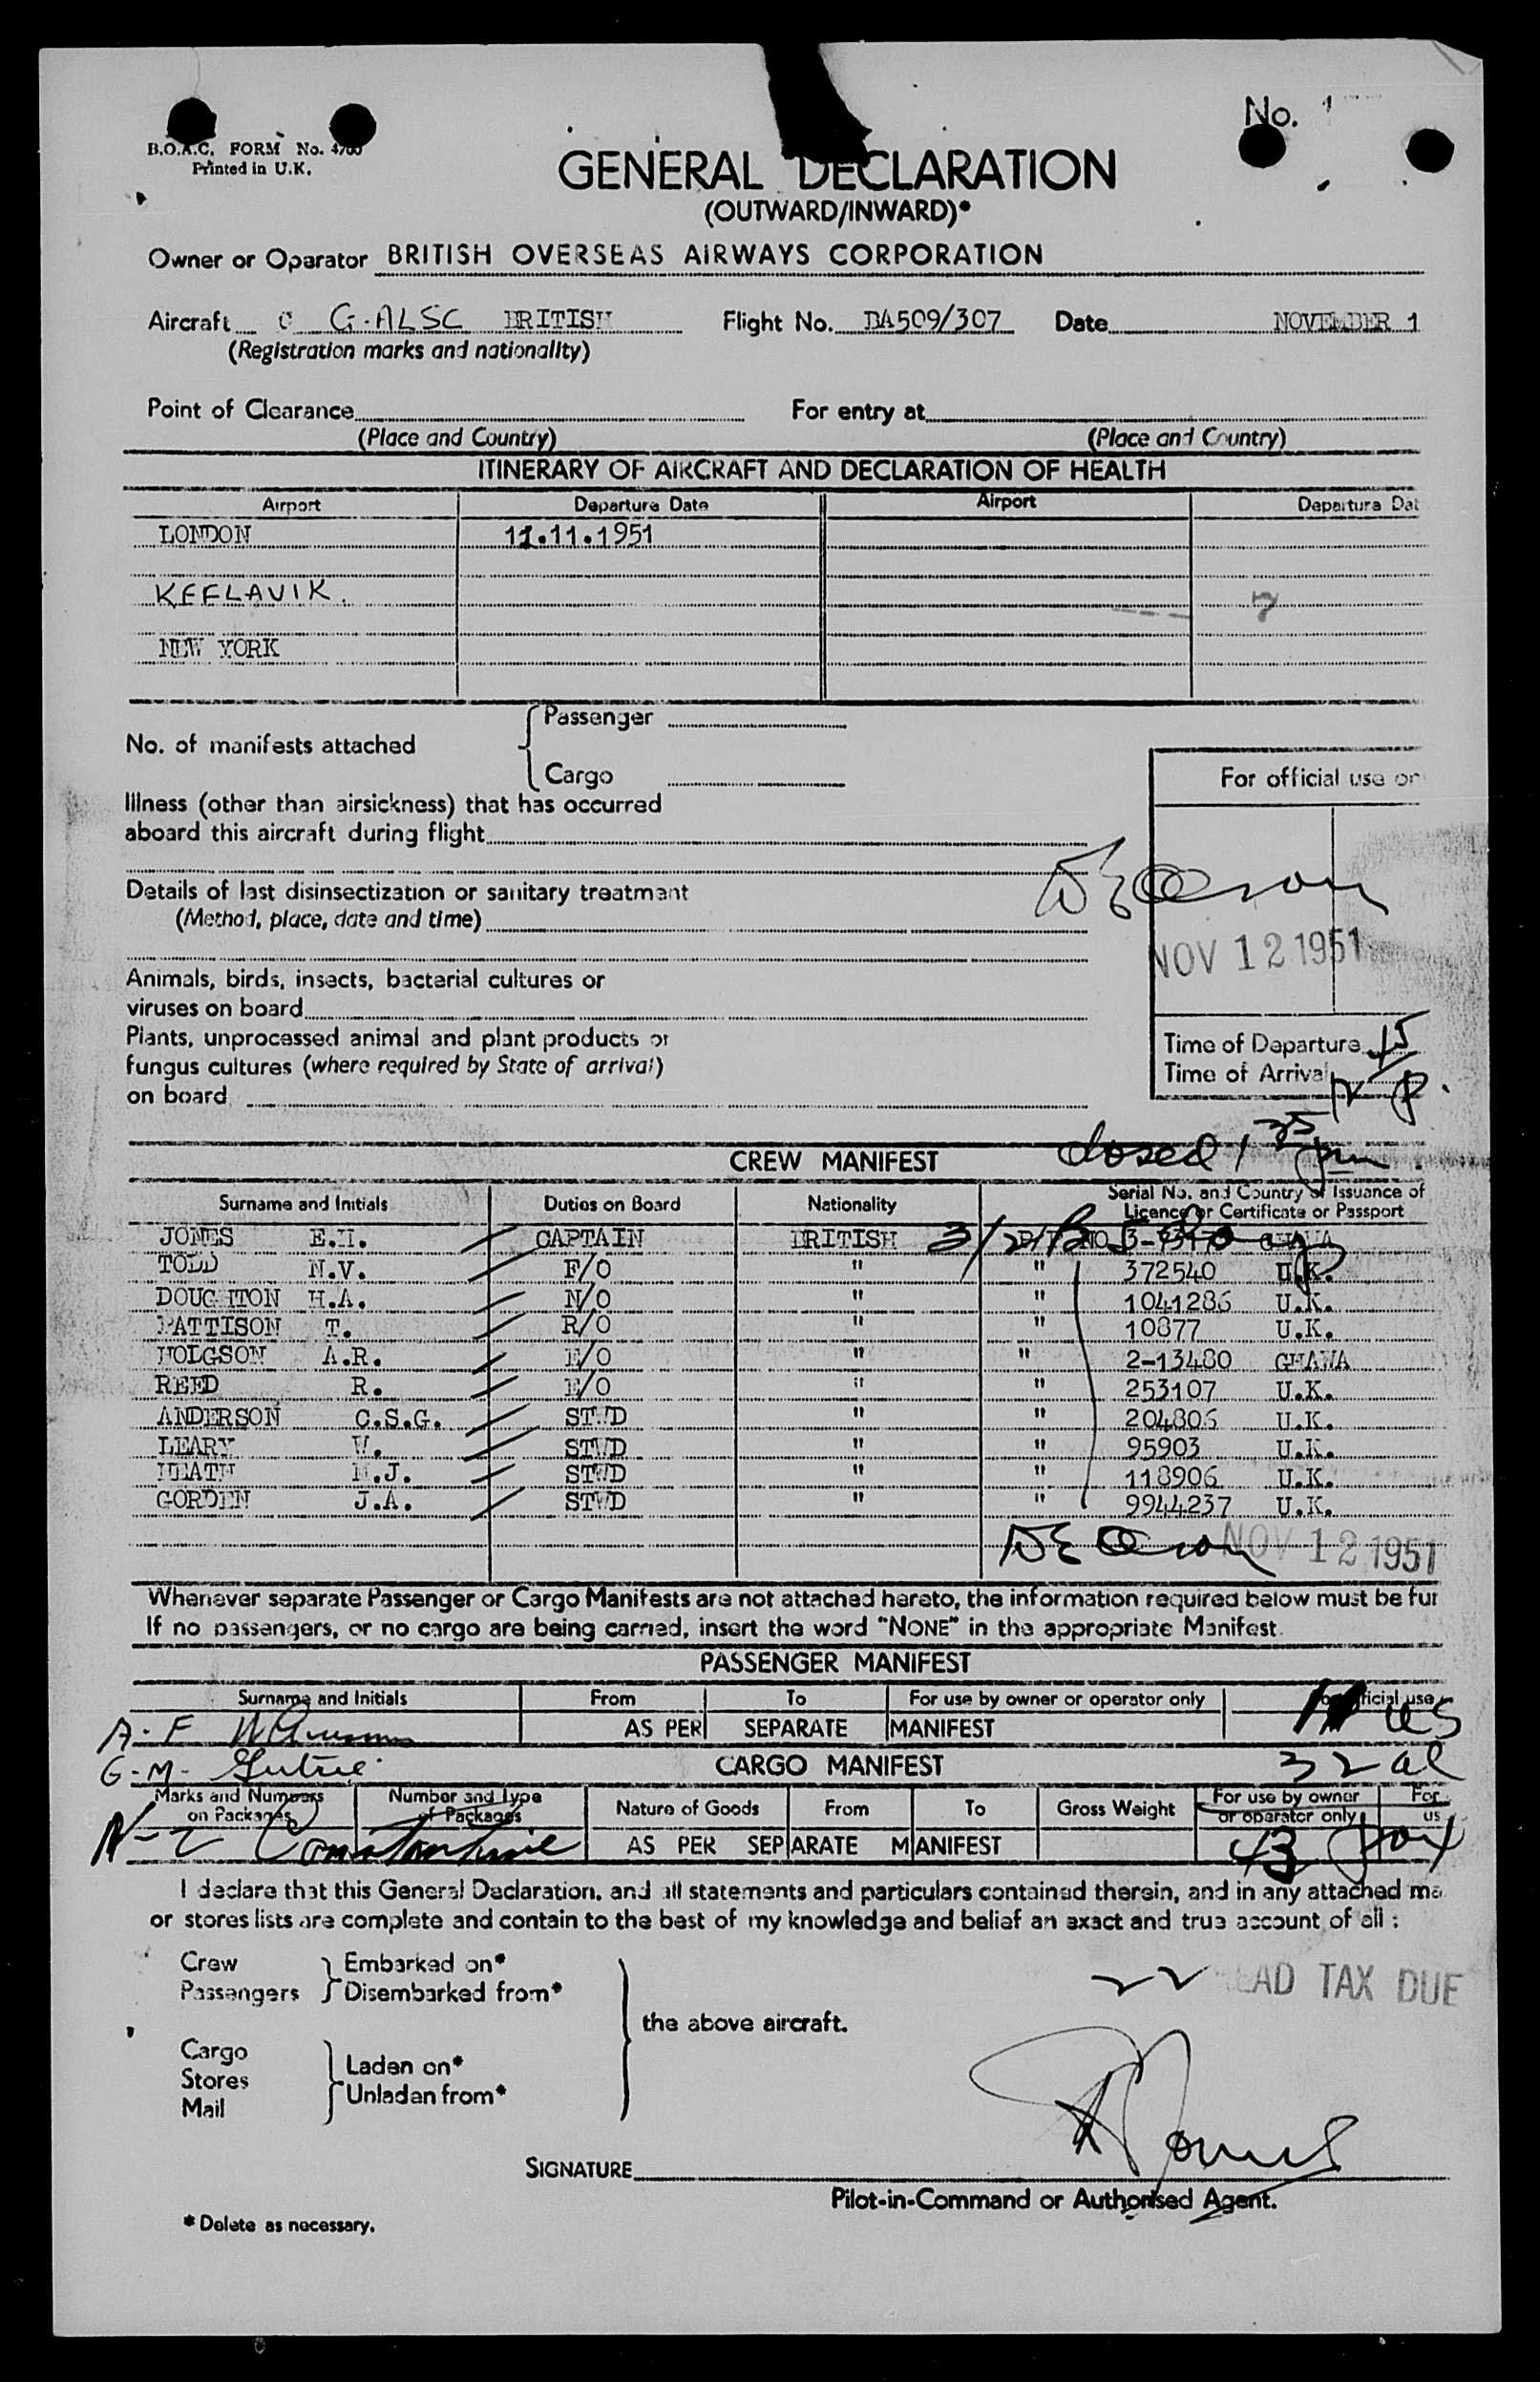 No.
B.O.A.C. FORM No.
Printed in U.K.
GENERAL DECLARATION
(OUTWARD/INWARD)*
Owner or Operator BRITISH OVERSEAS AIRWAYS CORPORATION
Aircraft G-ALSC BRITISH Flight No. BA509/307 Date NOVEMBER 1
(Registration marks and nationality)
Point of Clearance For entry at
(Place and Country) (Place and Country)
ITINERARY OF AIRCRAFT AND DECLARATION OF HEALTH
Airport Departure Date Airport Departure Dat
LONDON 11.11.1951
KEFLAVIK.
NEW YORK
Passenger
No. of manifests attached
Cargo
For official use on
Illness (other than airsickness) that has occurred
aboard this aircraft during flight
Details of last disinsectization or sanitary treatment
(Method, place, date and time)
NOV 12 1951
Animals, birds, insects, bacterial cultures or
viruses on board
Plants, unprocessed animal and plant products or
fungus cultures (where required by State of arrival)
on board
Time of Departure
Time of Arrival
closed 1 35 pm
CREW MANIFEST
Surname and Initials Duties on Board Nationality Serial No. and Country of Issuance of
Licence or Certificate or Passport
JONES CAPTAIN BRITISH
TODD N.V. F/O " " 372540 U.K.
H.A. N/O " " 1041286 U.K.
PATTISON T. R/O " " 10877 U.K.
A.R. E/O " " 2-13480
REED R. E/O " " 253107 U.K.
ANDERSON C.S.G. STWD " " 204806 U.K.
LEARY W. STWD " " 95903 U.K.
HEATH STWD " " 118906 U.K.
GORDEN J.A. STWD " " 9944237 U.K.
NOV 12 1951
Whenever separate Passenger or Cargo Manifests are not attached hereto, the information required below must be fur
If no passengers, or no cargo are being carried, insert the word "NONE" in the appropriate Manifest.
PASSENGER MANIFEST
Surname and Initials From To For use by owner or operator only
AS PER SEPARATE MANIFEST 11 us
A. F.
G. M.
CARGO MANIFEST
32 al
Marks and Numbers on Packages Number and Type of Packages Nature of Goods From To Gross Weight For use by owner or operator only For us
AS PER SEPARATE MANIFEST
Constantine
43 pax
I declare that this General Declaration, and all statements and particulars contained therein, and in any attached ma
or stores lists are complete and contain to the best of my knowledge and belief an exact and true account of all :
Crew Embarked on*
Passengers Disembarked from*
22 HEAD TAX DUE
the above aircraft.
Cargo
Stores Laden on*
Mail Unladen from*
SIGNATURE
Pilot-in-Command or Authorised Agent.
* Delete as necessary.